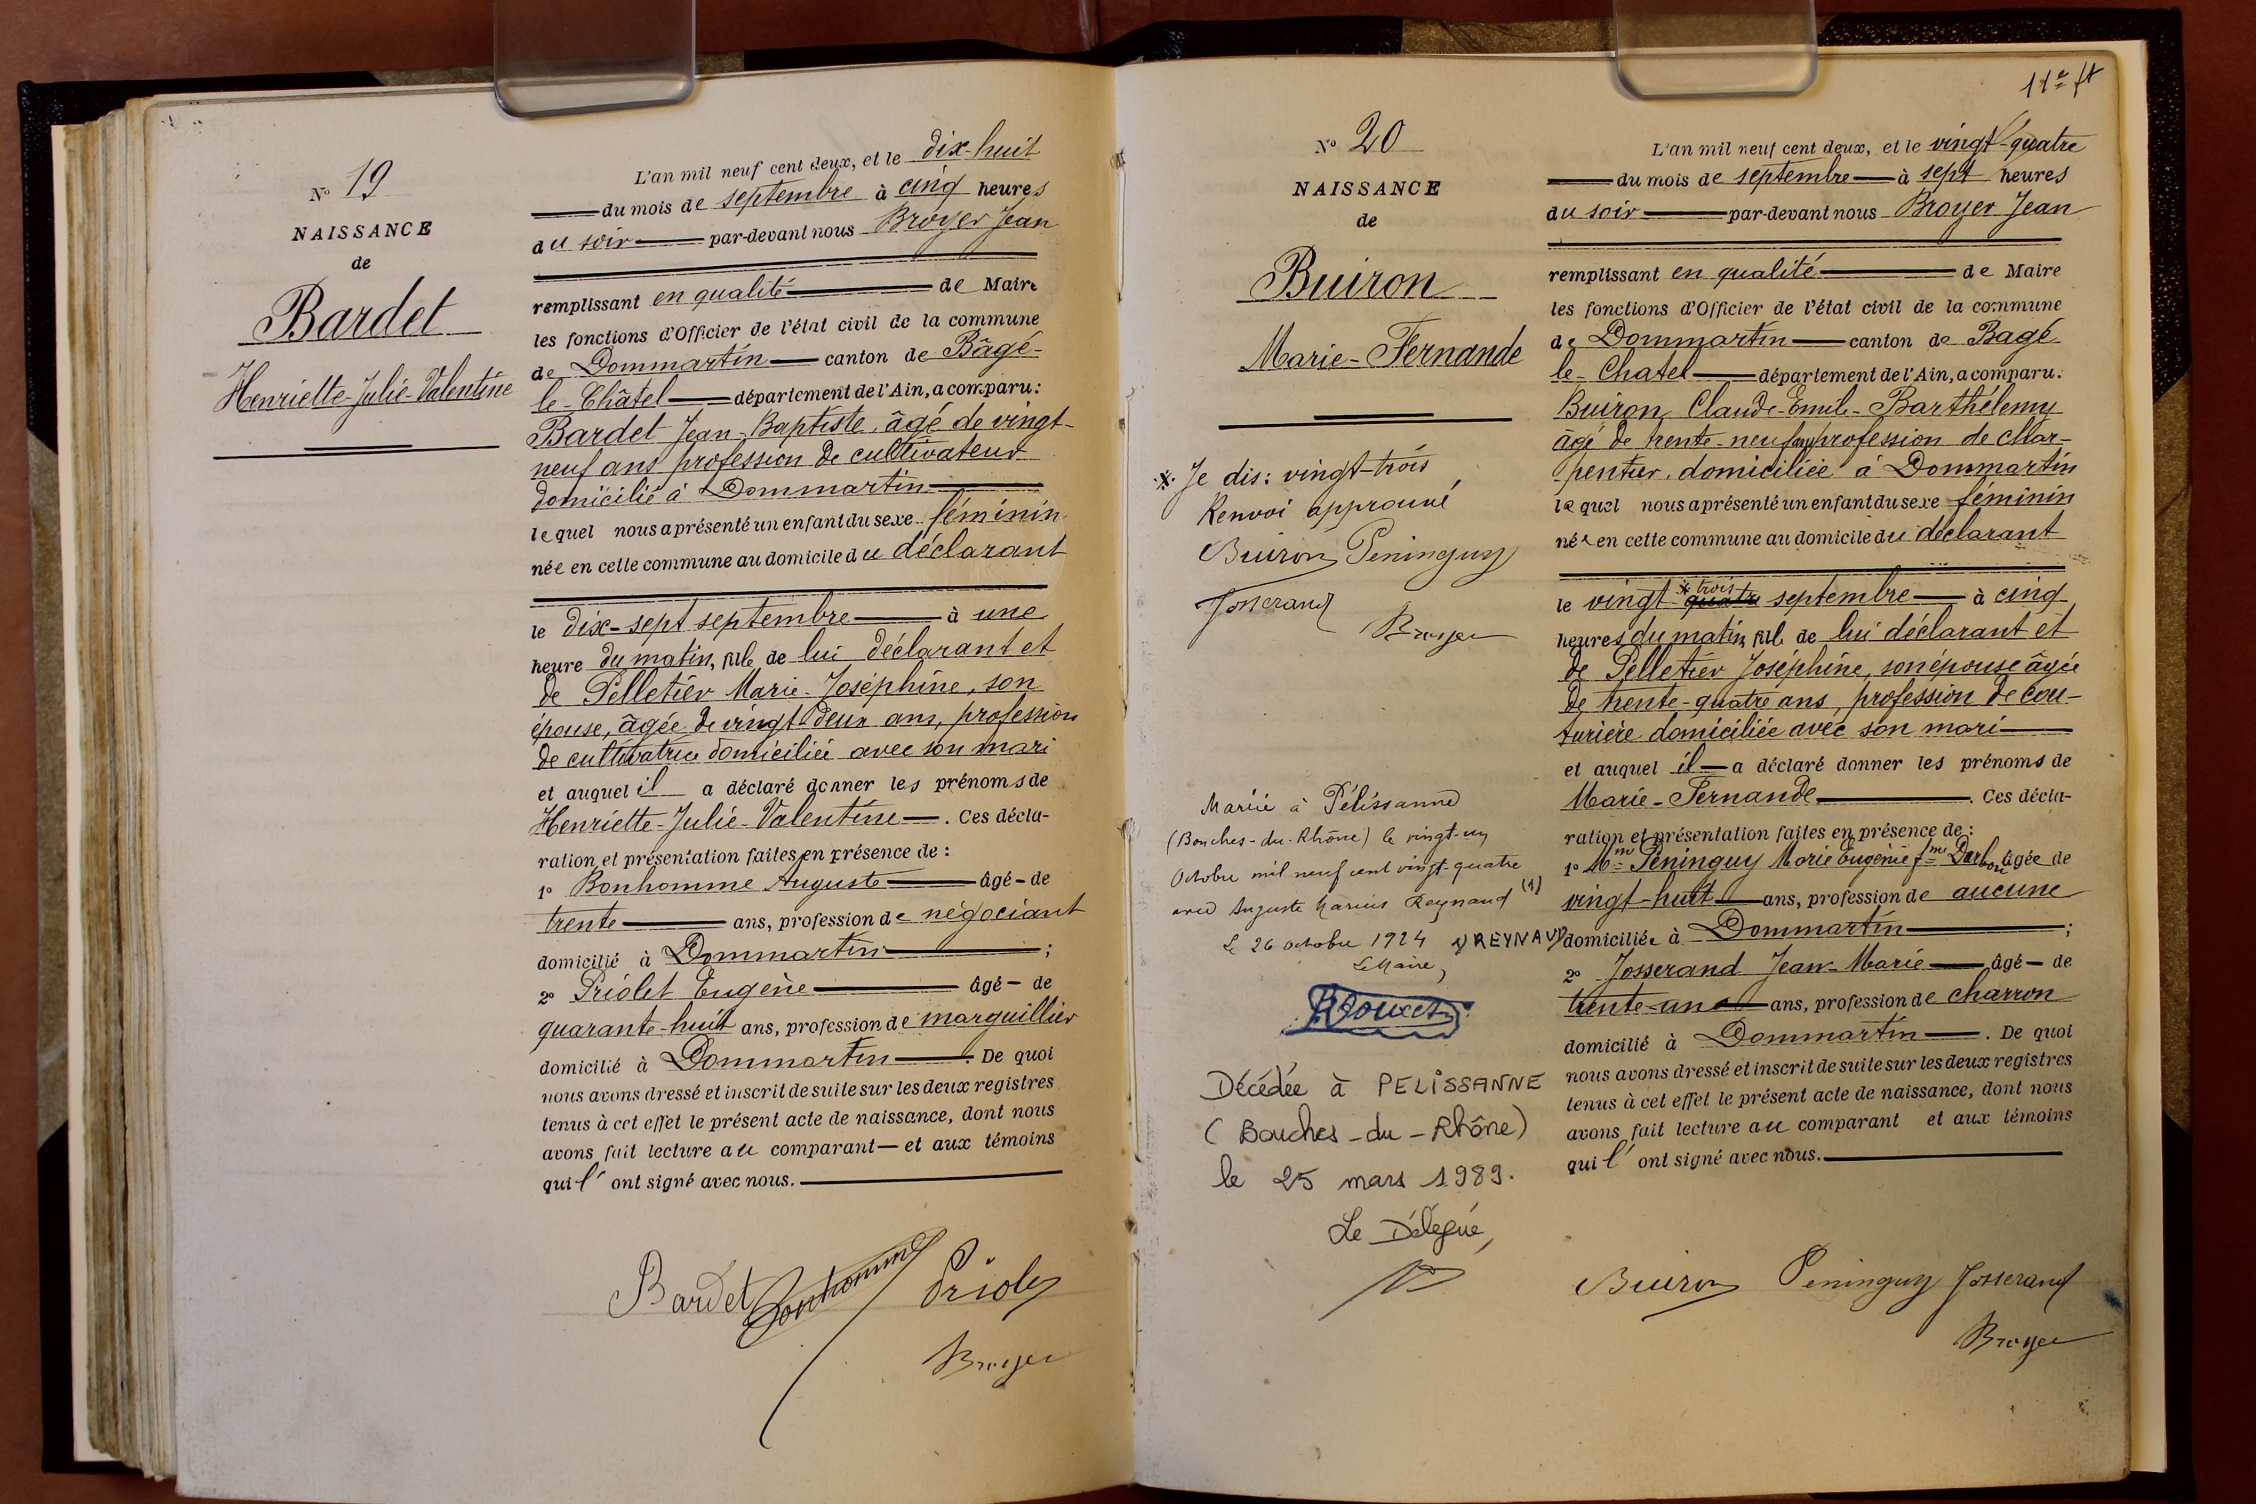 N° 19
NAISSANCE
de
Bardet
Henriette-Julie-Valentine
L'an mil neuf cent deux, et le dix-huit
du mois de septembre à cinq heures
du soir par-devant nous Broyer Jean
remplissant en qualité de Maire
les fonctions d'Officier de l'état civil de la commune
de Dommartin canton de Bâgé-
le-Châtel département de l'Ain, a comparu:
Bardet Jean-Baptiste, âgé de vingt-
neuf ans profession de cultivateur
domicilié à Dommartin
lequel nous a présenté un enfant du sexe féminin
née en cette commune au domicile du déclarant
le dix-sept septembre à une
heure du matin, fille de lui déclarant et
de Pelletier Marie-Joséphine, son
épouse, âgée de vingt-deux ans, profession
de cultivatrice domiciliée avec son mari
et auquel il a déclaré donner les prénoms de
Henriette-Julie-Valentine. Ces décla-
ration et présentation faites en présence de :
1° Bonhomme Auguste âgé de
trente ans, profession de négociant
domicilié à Dommartin ;
2° Priolet Eugène âgé de
quarante-huit ans, profession de marguillier
domicilié à Dommartin. De quoi
nous avons dressé et inscrit de suite sur les deux registres
tenus à cet effet le présent acte de naissance, dont nous
avons fait lecture au comparant et aux témoins
qui l' ont signé avec nous.
Bardet Bonhomme Priolet
Broyer
11e ft
N° 20
NAISSANCE
de
Buiron
Marie-Fernande
* Je dis: vingt-trois
Renvoi approuvé
Buiron Peninguy
Josserand
Broyer
Mariée à Pélissanne
(Bouches-du-Rhône) le vingt-un
Octobre mil neuf cent vingt-quatre
avec Auguste Marius Reynaud (1)
Le 26 octobre 1924 1) REYNAUD
Le Maire,
Décédée à PELISSANNE
(Bouches-du-Rhône)
le 25 mars 1989.
Le Délégué,
L'an mil neuf cent deux, et le vingt-quatre
du mois de septembre à sept heures
du soir par-devant nous Broyer Jean
remplissant en qualité de Maire
les fonctions d'Officier de l'état civil de la commune
de Dommartin canton de Bagé
le-Chatel département de l'Ain, a comparu:
Buiron Claude-Emile-Barthélemy
âgé de trente-neuf ans profession de char-
pentier, domiciliée à Dommartin
lequel nous a présenté un enfant du sexe féminin
née en cette commune au domicile du déclarant
le vingt * trois quatre septembre à cinq
heures du matin, fille de lui déclarant et
de Pelletier Joséphine, son épouse âgée
de trente-quatre ans, profession de cou-
turière domiciliée avec son mari
et auquel il a déclaré donner les prénoms de
Marie-Fernande. Ces décla-
ration et présentation faites en présence de :
1° Mme Péninguy Marie Eugénie fme Darbon âgée de
vingt-huit ans, profession de aucune
domiciliée à Dommartin ;
2° Josserand Jean-Marie âgé de
trente-un ans, profession de charron
domicilié à Dommartin. De quoi
nous avons dressé et inscrit de suite sur les deux registres
tenus à cet effet le présent acte de naissance, dont nous
avons fait lecture au comparant et aux témoins
qui l' ont signé avec nous.
Buiron Peninguy Josserand
Broyer